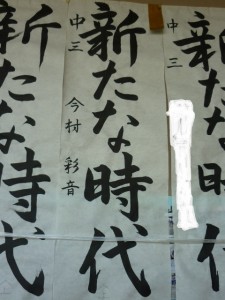 新たな時代
中三
新たな時代
中三 今村 彩音
新たな時代